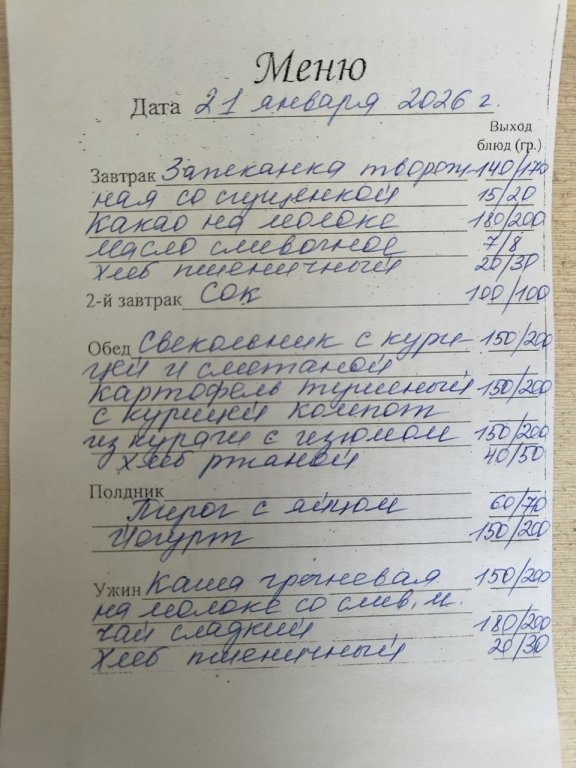 Меню
Дата 21 января 2026 г.
Выход
блюд (гр.)
Завтрак Запеканка творож- 140/170
ная со сгущенкой 15/20
Какао на молоке 180/200
масло сливочное 7/8
хлеб пшеничный 20/30
2-й завтрак Сок 100/100
Обед Свекольник с кури- 150/200
цей и сметаной
картофель тушеный 150/200
с курицей компот
из кураги с изюмом 150/200
хлеб ржаной 40/50
Полдник
Пирог с яйцом 60/70
Йогурт 150/200
Ужин Каша гречневая 150/200
на молоке со слив. м.
чай сладкий 180/200
Хлеб пшеничный 20/30